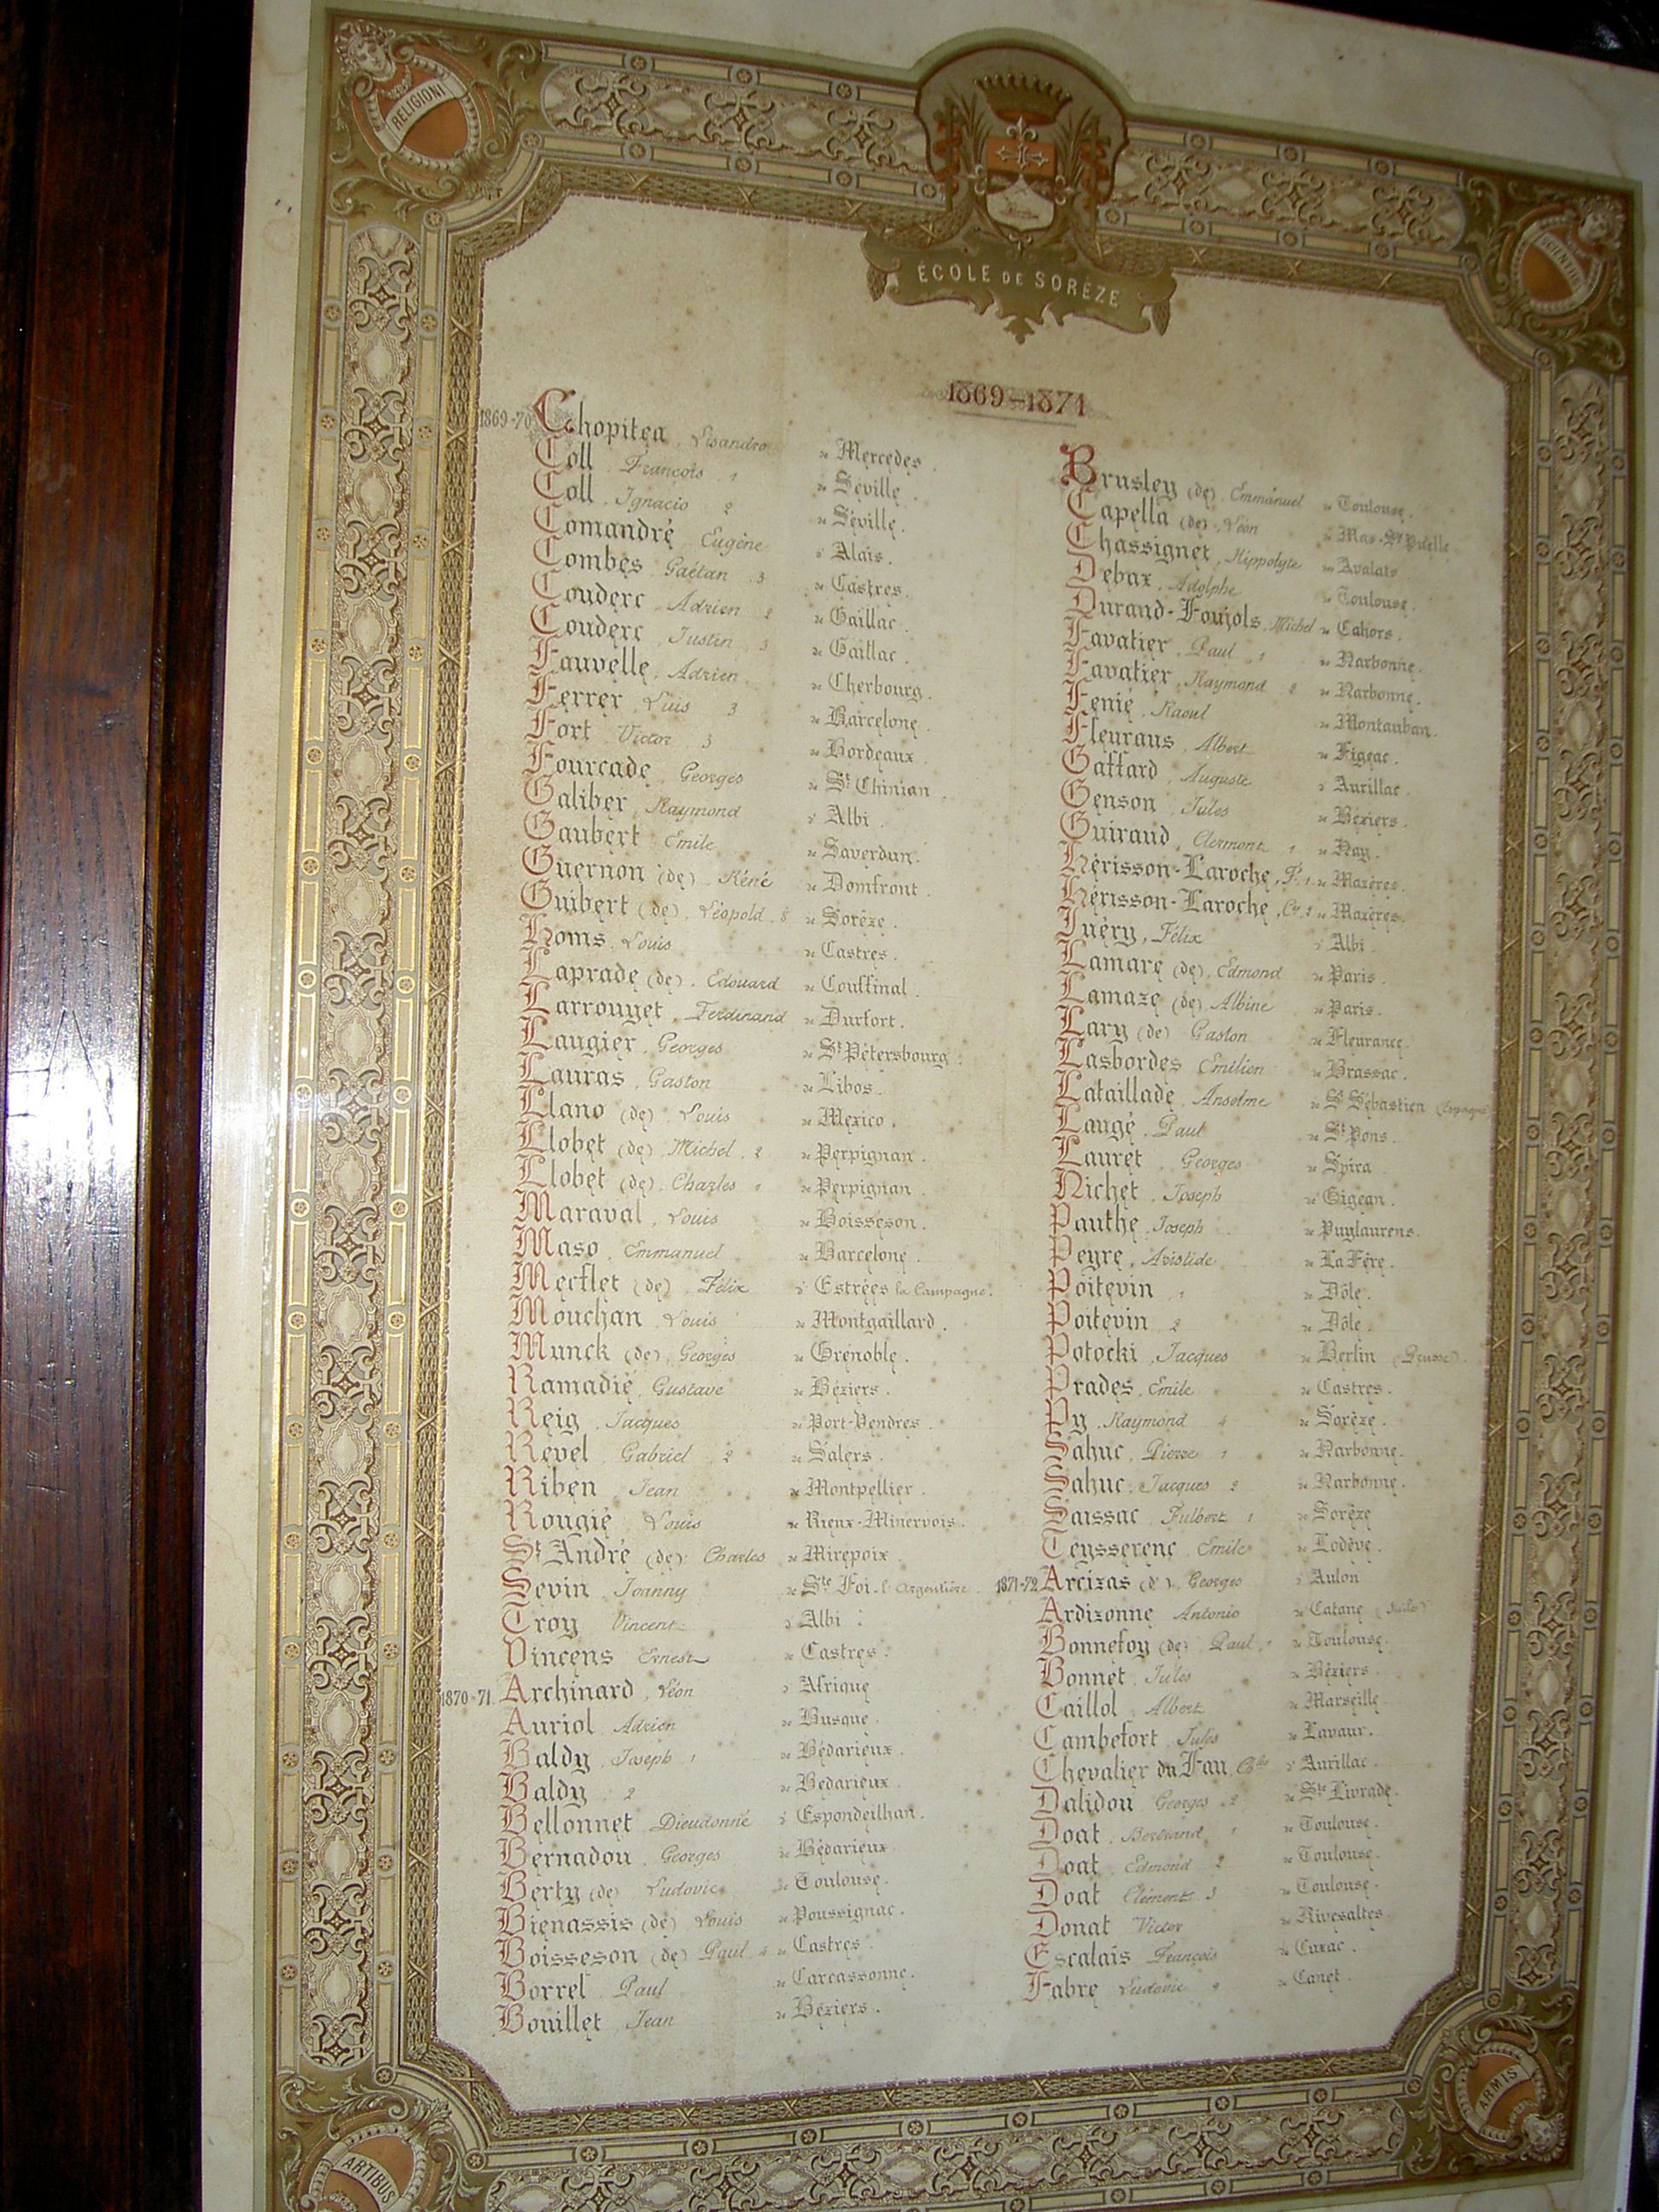 RELIGIONI
SCIENTIÆ
ÉCOLE DE SORÈZE
1869-1871
1869-70 Chopitea, Lisandro de Mercedes.
Coll, François 1 de Séville.
Coll, Ignacio 2 de Séville.
Comandré Eugène d' Alais.
Combes Gaëtan 3 de Castres.
Couderc, Adrien 2 de Gaillac.
Couderc, Justin 3 de Gaillac.
Fauvelle, Adrien de Cherbourg.
Ferrer, Luis 3 de Barcelone.
Fort Victor 3 de Bordeaux.
Fourcade, Georges de St Chinian.
Galiber, Raymond d' Albi.
Gaubert Emile de Saverdun.
Guernon (de) Réné de Domfront.
Guibert (de), Léopold, 8 de Sorèze.
Homs, Louis de Castres.
Laprade (de), Edouard de Couffinal.
Larrouyet, Ferdinand de Durfort.
Laugier, Georges de St Pétersbourg.
Lauras, Gaston de Libos.
Llano (de) Louis de Mexico.
Llobet (de) Michel, 2 de Perpignan.
Llobet (de), Charles de Perpignan.
Maraval, Louis de Boisseson.
Maso, Emmanuel de Barcelone.
Mecflet (de), Félix d' Estrées la Campagne.
Mouchan Louis de Montgaillard.
Munck (de), Georges de Grenoble.
Ramadié, Gustave de Béziers.
Reig, Jacques de Port-Vendres.
Revel, Gabriel 2 de Salers.
Riben Jean de Montpellier.
Rougié Louis de Rieux-Minervois.
St André (de) Charles de Mirepoix.
Sevin Joanny de Ste Foi-l'Argentière.
Troy Vincent d' Albi.
Vincens Ernest de Castres.
1870-71. Archinard, Léon d' Afrique
Auriol, Adrien de Busque.
Baldy, Joseph 1 de Bédarieux.
Baldy 2 de Bédarieux.
Bellonnet Dieudonné d' Espondeilhan.
Bernadou, Georges de Bédarieux
Berty (de) Ludovic de Toulouse.
Bienassis (de) Louis de Poussignac.
Boisseson (de) Paul 4 de Castres.
Borrel Paul de Carcassonne.
Bouillet Jean de Béziers.
Brusley (de), Emmanuel de Toulouse.
Capella (de), Léon de Mas-Stes Puelles
Chassignet, Hippolyte Avalats
Debax, Adolphe de Toulouse.
Durand-Foujols, Michel de Cahors.
Favatier, Paul 1 de Narbonne.
Favatier, Raymond 2 de Narbonne.
Fenié, Raoul de Montauban.
Fleuraus, Albert de Figeac.
Gaffard, Auguste d' Aurillac.
Genson, Jules de Béziers.
Guiraud, Clermont 1 de Nay.
Hérisson-Laroche, F. 1 de Mazères.
Hérisson-Laroche, Ch. 2 de Mazères.
Juéry, Félix d' Albi.
Lamare (de), Edmond de Paris.
Lamaze (de), Albine de Paris.
Lary (de) Gaston de Fleurance.
Lasbordes Emilien de Brassac.
Lataillade, Anselme de St Sébastien (Espagne)
Laugé, Paul de St Pons.
Lauret, Georges de Spira
Nichet, Joseph de Gigean.
Pauthe, Joseph de Puylaurens.
Peyre, Aristide de La Fère.
Poitevin, 1 de Dôle.
Poitevin 2 de Dôle.
Potocki, Jacques de Berlin (Prusse).
Prades, Emile de Castres.
Py, Raymond 4 de Sorèze.
Sahuc, Pierre 1 de Narbonne.
Sahuc, Jacques 2 de Narbonne.
Saissac, Fulbert 1 de Sorèze
Teysserenc, Emile de Lodève.
1871-72. Arcizas (d'), Georges d' Aulon
Ardizonne Antonio de Catane
Bonnefoy (de) Paul, 1 de Toulouse.
Bonnet, Jules de Béziers
Caillol, Albert de Marseille
Cambefort, Jules de Lavaur.
Chevalier du Fau, Chles d' Aurillac.
Dalidou Georges 2 de Ste Livrade.
Doat, Bertrand 1 de Toulouse.
Doat, Edmond 2 de Toulouse.
Doat Clément 3 de Toulouse.
Donat Victor de Rivesaltes
Escalais François de Cuxac.
Fabre Ludovic 2 de Canet.
ARTIBUS
ARMIS